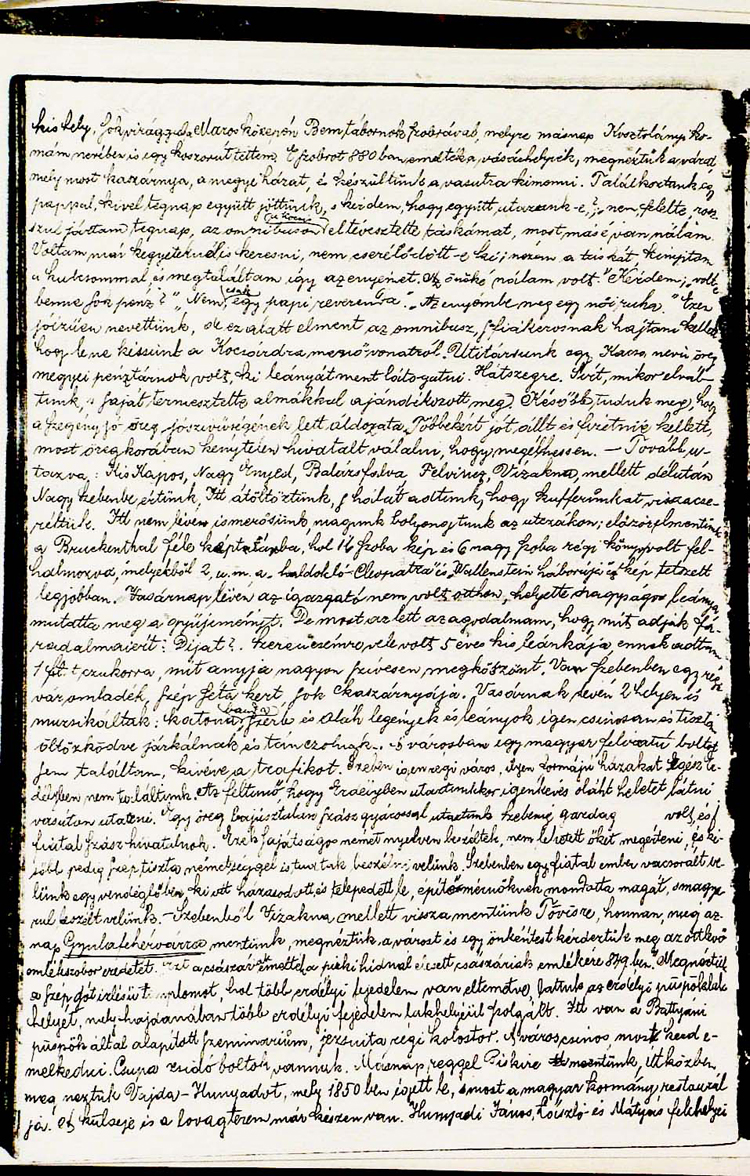 kis hely, sok virággal a Maros közepén Bem tábornok szobrával, melyre másnap Kosztolányi ko-
mám nevében is egy koszorut tettem. E szobrot 880 ban emelték a vásárhelyiek, megnéztük a várat
mely most kazárnya, a megye házat, és készültünk a vasutra kimenni. Találkoztunk egy
pappal, kivel tegnap együtt jöttünk, s kérdem, hogy együtt utazunk-e?, nem felelte, rosz
szul jártam tegnap, az omnibuson eltevesztette táskámat, most másé van nálam.
Voltam már kegyiteknél is keresni, nem cserélődött-e ki; nézem a táskát, kinyitom
a kulcsommal, és megtaláltam így az enyémet. Az önöké nálam volt. "Kérdem; volt-e
benne sok pénz?" "Nem, csak egy papi reverenda." "Az enyémbe meg egy női ruha." Ezen
jóizüen nevettünk, de ez alatt elment az omnibusz, s fiakerosnak hajtani kellett
hogy le ne késsünk a Kocsárdra menő vonatról. Utitársunk egy Kacso nevü öreg
megyei pénztárnok volt, ki leányát ment látogatni Hátszegre. Sírt, mikor elvál-
tunk, s saját termesztette almákkal ajándékozott meg. Később tuduk meg, hog
a szegény jó öreg jószivüségének lett áldozata. Többekért jót állt és fizetnie kellett,
most öreg korában kénytelen hivatalt válalni, hogy megélhessen. – Tovább u-
tazva: Kis Kapos, Nagy Enyed, Balázsfalva Felvincz, Vizakna mellett délután
Nagy Szebenbe értünk, Itt átöltöztünk, s hálát adtunk, hogy kufferünkat visszacse-
réltük. Itt nem lévén ismerősünk magunk bolyongtunk az utczákon; először elmentünk
a Bruckenthal féle képtárba, hol 14 szoba kép és 6 nagy szoba régi könyv volt fel-
halmozva, melyekből 2, u.m. a haldokló Cleopatra és Wallenstein háborúja cz kép tetszett
legjobban. Vasárnap lévén az igazgató nem volt otthon, helyette nagyságos leánya
mutatta meg a gyüjteményt. De most az lett az agodalmam, hogy mit adjak fá-
radalmaiért: Díjat? Szerencsémre vele volt 5 éves kis leánkája, ennek adtam
1 ft. t czukorra, mit anyja nagyon szivesen megköszönt. Van Szebenben egy régi
váromladék, szép séta kert, sok kaszárnyája. Vasárnak lévén 2 helyen is
muzsikáltak: katona banda és oláh legények és leányok igen csinosan és tisztán
öltözködve járkálnak és tánczolnak. A városban egy magyar feliratu boltot
sem találtam, kivéve a trafikot. Szeben igen régi város, ilyen formáju házakat egész Er-
délyben nem találtunk. Az feltünő, hogy Erdélyben utaztunkkor igen kevés oláht lehetet látni
vasúton utazni. Egy öreg bajusztalan szász gyárossal utaztunk Szebenig gazdag volt, és
fiatal szász hivatalnok. Ezek sajátságos német nyelven beszéltek, nem lehetett őket megérteni, és ki-
jöbb pedig szép tiszta németséggel is tudtak beszélni velünk. Szebenben egy fiatal ember vacsorált ve-
lünk egy vendéglőben ki itt házasodott és telepedett le, építőmérnöknek mondotta magát, s magya-
rul beszélt velünk. – Szebenből Vizakna mellett vissza mentünk Tövisre, honnan még az-
nap Gyulafehérvárra mentünk, megnéztük a várost és egy önkéntest kérdeztük meg az ottkvő
emlékszobor eredetét. Ezt a császár emeltette a piski hidnál elesett császáriak emlékére 849 ben. Megnéztük
a szép gót izlésü templomot, hol több erdélyi fejedelem van eltemetve, láttuk az erdélyi püspök lak-
helyét, mely hajdanában több erdélyi fejedelem lakhelyéül szolgált. Itt van a Battyáni
püspök által alapított szeminarium, jezsuita régi kolostor. A város csinos, most kezd e-
melkedni. Csupa zsidó boltok vannak. Másnap reggel Piskire mentünk, ott közben
meg néztük Vajda-Hunyadot, mely 1850 ben égett le, s most a magyar kormány restaurál-
já. A külseje is a lovagterem már készen van. Hunyadi János, László és Mátyás fekhelyei